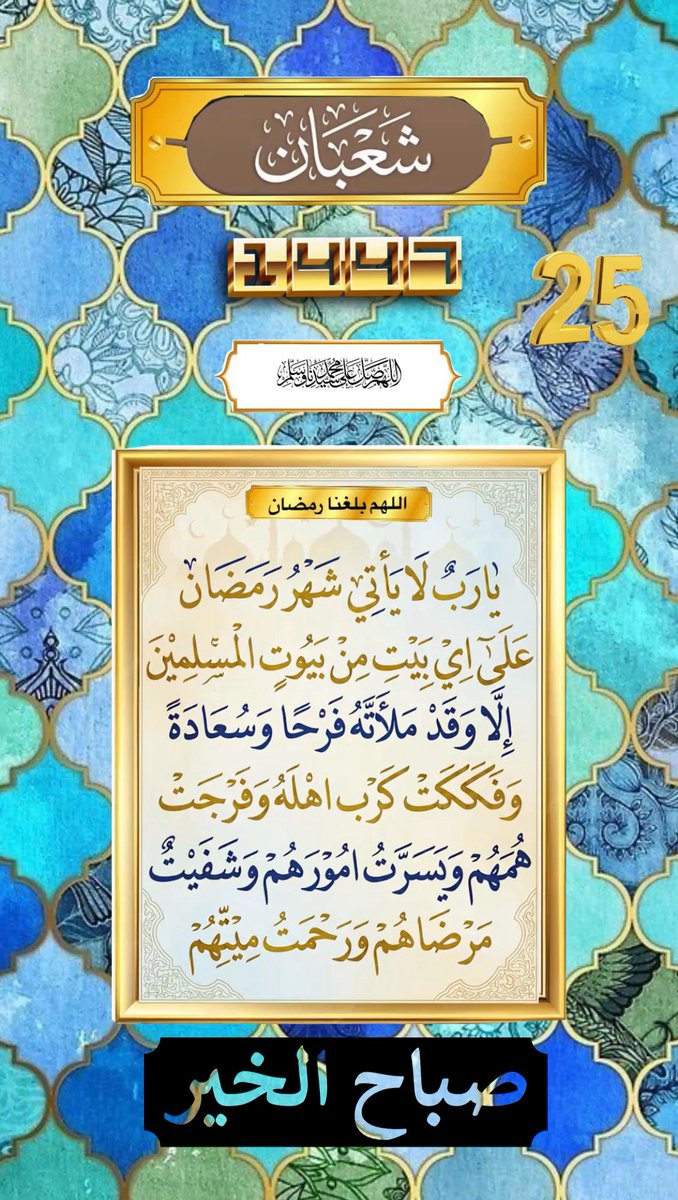 شَعْبَان
1447
25
اللهم صل على سيدنا محمد وسلم
اللهم بلغنا رمضان
يٰارَبٌ لَا يَأتِيْ شَهْرُ رَمَضَانْ
عَلَىٓ اِيْ بِيَتِ مِنْ بَيُوتِ الْمسْلِمِيْنَ
إِلَّا وَقَدْ مَلأَتَّهُ فَرْحًا وَسُعَادَةً
وَفَكَكَتْ كَرْب اهْلَهُ وَفَرْجَتْ
هُمَهُمْ وَيَسَرَّتُ امُوْرَهُمْ وَشَفَيْتٌ
مَرْضَاهُمْ وَرَحْمَتُ مِيْتِّهُمْ
صباح الخير